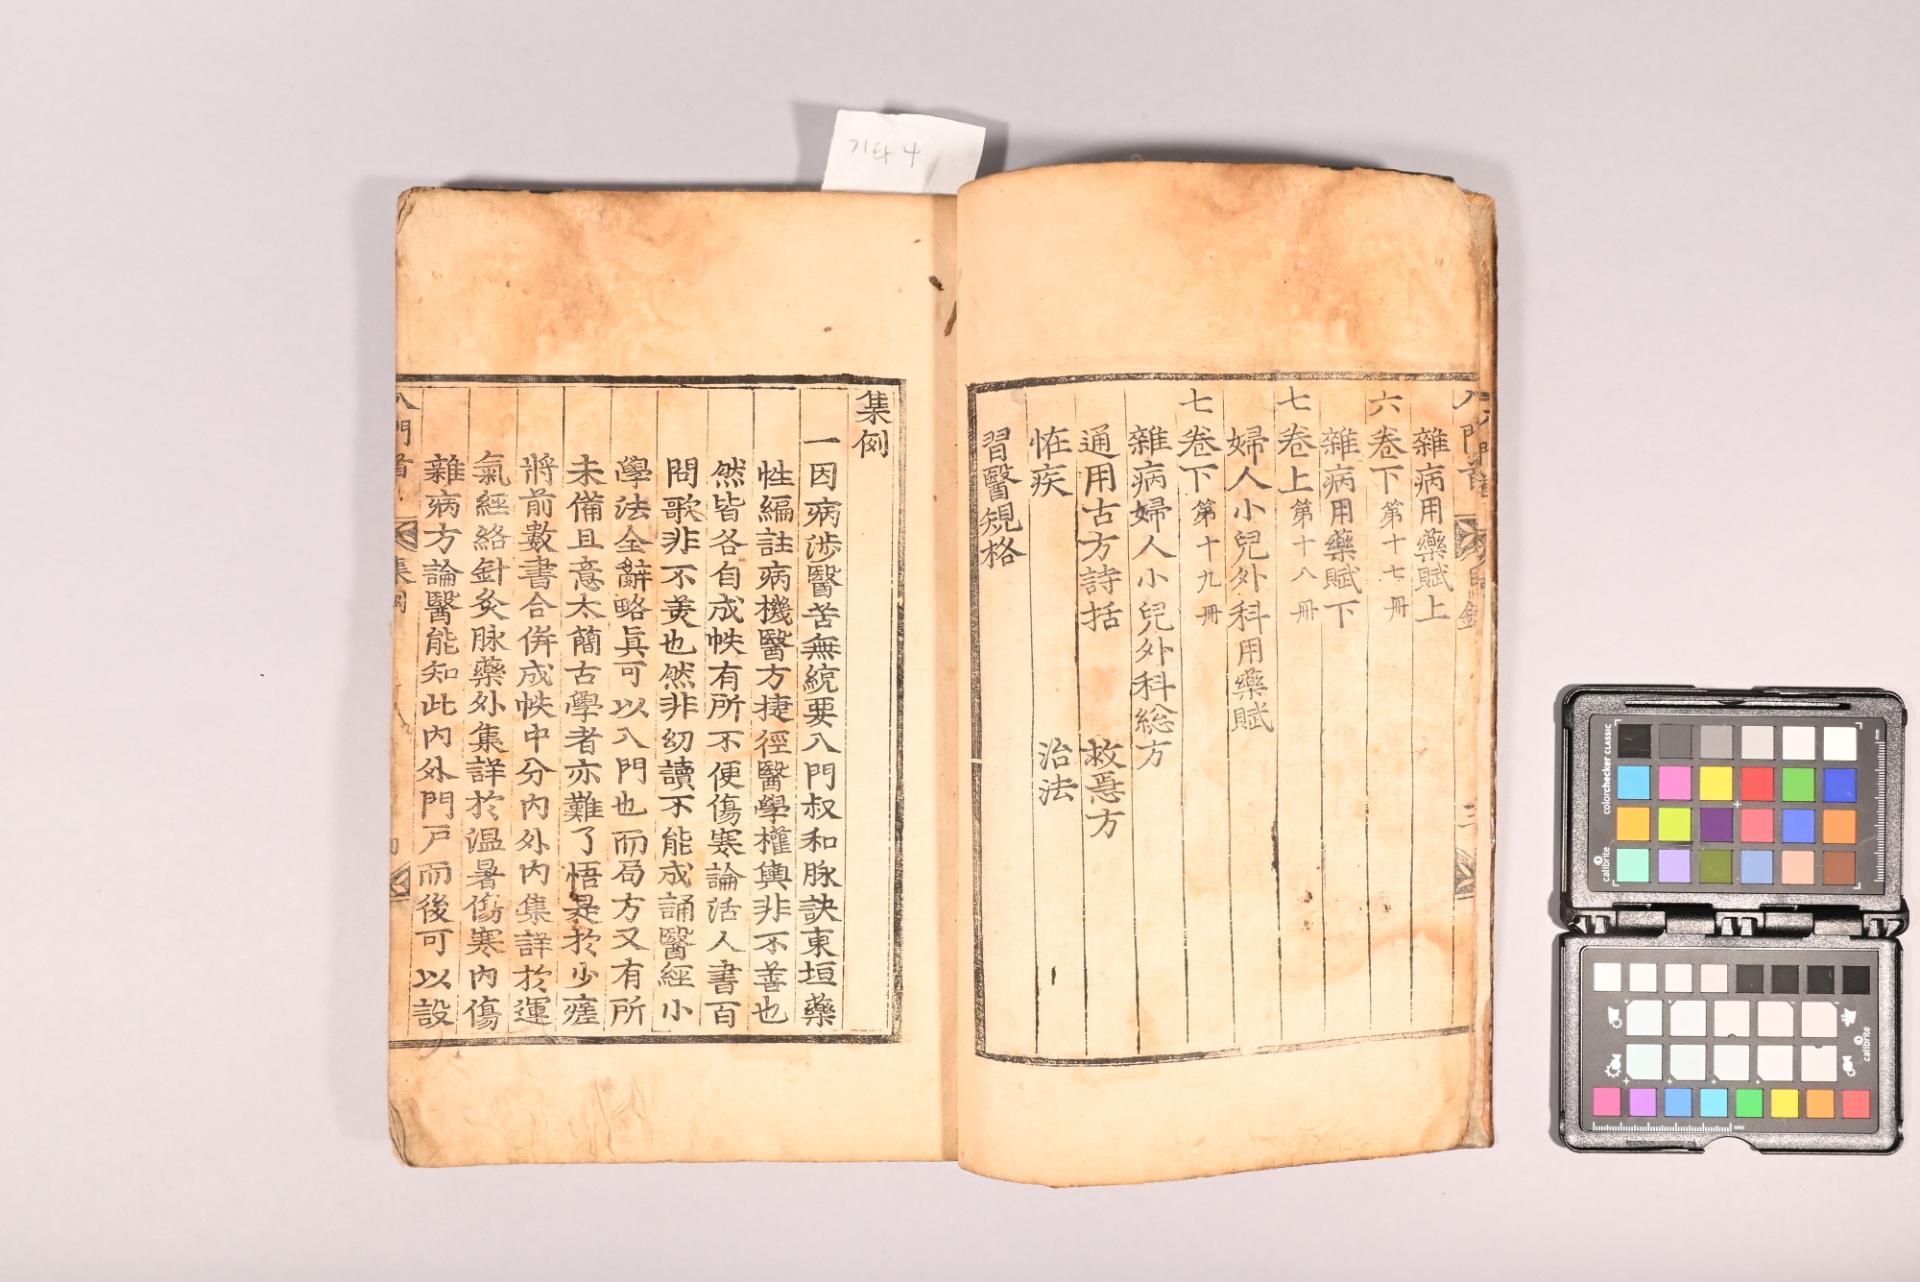 기타 4
雜病用藥賦上
六卷下 第十七冊
雜病用藥賦下
七卷上 第十八冊
婦人小兒外科用藥賦
七卷下 第十九冊
雜病婦人小兒外科総方
通用古方詩括 救急方
恠疾 治法
習醫規格
集例
一因病涉醫苦無統要入門叔和脉訣東垣藥
性編註病機醫方捷徑醫學權輿非不善也
然皆各自成帙有所不便傷寒論活人書百
問歌非不羙也然非㓜讀不能成誦醫經小
學法全辭略眞可以入門也而局方又有所
未備且意太簡古學者亦難了悟是於少瘥
將前數書合倂成帙中分內外內集詳於運
氣經絡針灸脉藥外集詳於溫暑傷寒內傷
雜病方論醫能知此內外門戶而後可以設
colorchecker CLASSIC
calibrite
calibrite